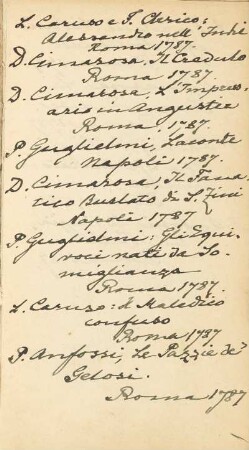 L. Caruso e F. Clerico:
Alessandro nell' Indie
Roma 1787.
D. Cimarosa, Il Credulo
Roma 1787.
D. Cimarosa, L'Impres-
ario in Angustea
Roma, 1787.
P. Guglielmi, Laconte
Napoli 1787.
D. Cimarosa, Il Fana-
tico Burlato di S. Zini
Napoli 1787
P. Guglielmi: Gli Equi-
voci nati da So-
miglianza
Roma 1787.
L. Caruso: il Maledico
confuso
Roma 1787
P. Anfossi, Le Pazzie de'
Gelosi.
Roma 1787